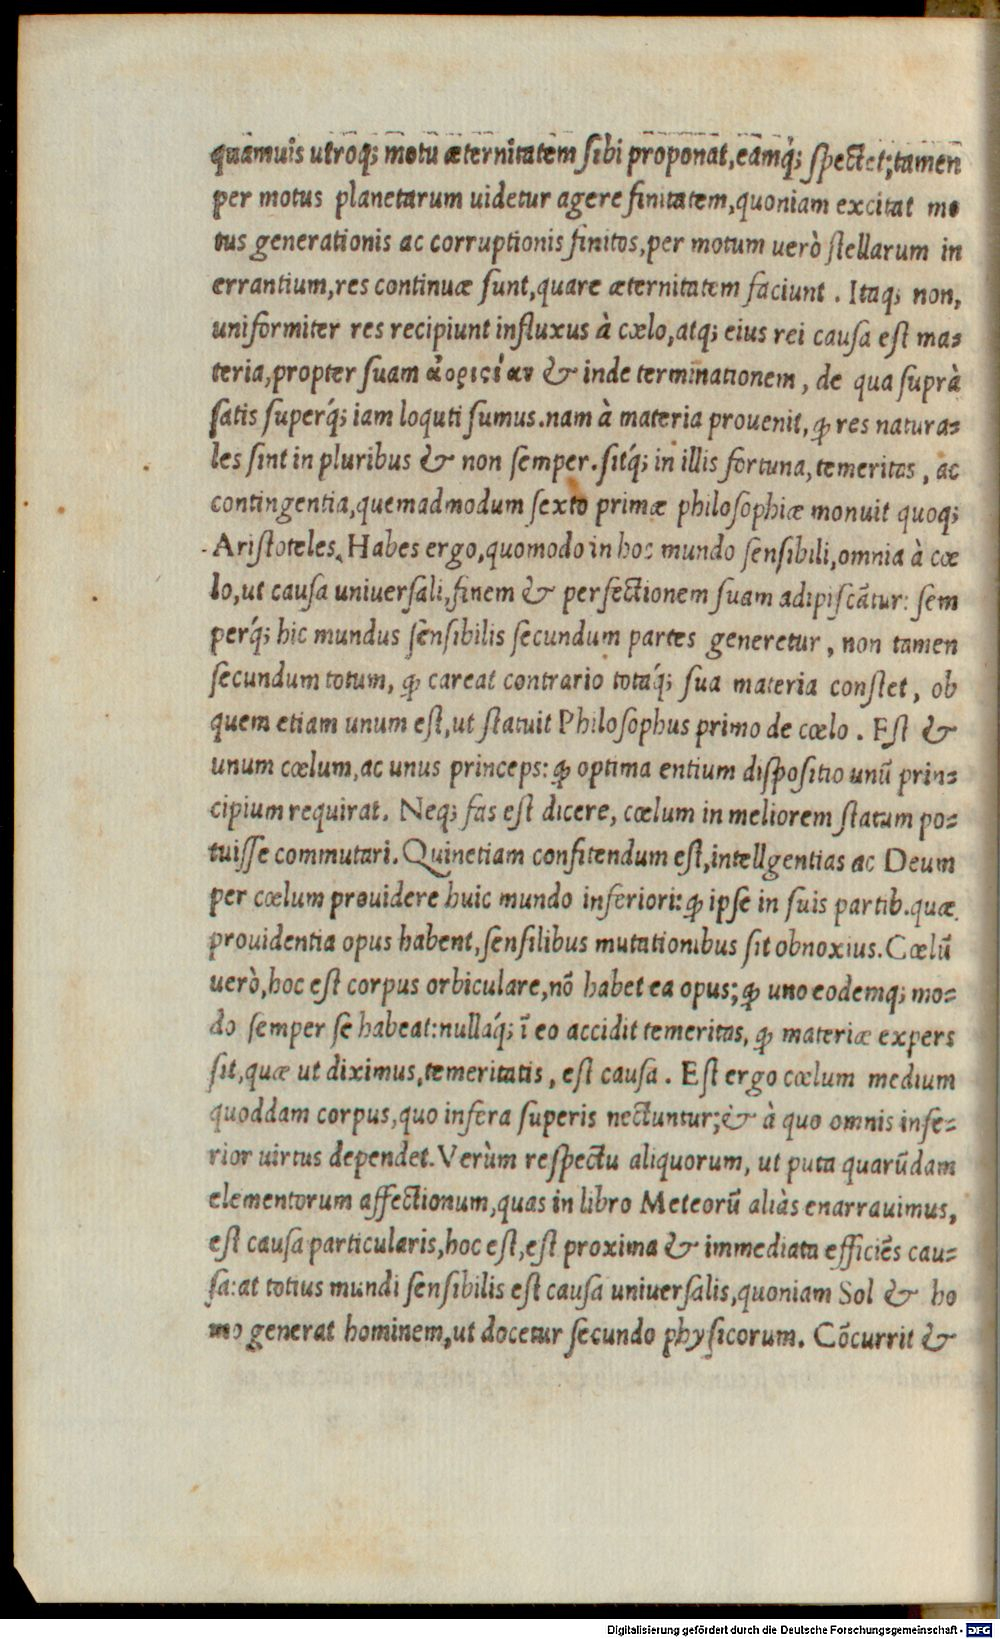 quamuis utroq; motu æternitatem sibi proponat, eamq́; spectet; tamen
per motus planetarum uidetur agere finitatem, quoniam excitat mo
tus generationis ac corruptionis finitos, per motum uerò stellarum in
errantium, res continuæ sunt, quare æternitatem faciunt. Itaq; non,
uniformiter res recipiunt influxus à cœlo, atq; eius rei causa est ma-
teria, propter suam ἀοριςίαν & inde terminationem, de qua suprà
satis superq́; iam loquti sumus. nam à materia prouenit, ꝙ res natura-
les sint in pluribus & non semper. sitq́; in illis fortuna, temeritas, ac
contingentia, quemadmodum sexto primæ philosophiæ monuit quoq;
Aristoteles. Habes ergo, quomodo in hoc mundo sensibili, omnia à cœ
lo, ut causa uniuersali, finem & perfectionem suam adipiscãtur: sem
perq́; hic mundus sensibilis secundum partes generetur, non tamen
secundum totum, ꝙ careat contrario totaq́; sua materia constet, ob
quem etiam unum est, ut statuit Philosophus primo de cœlo. Est &
unum cœlum, ac unus princeps: ꝙ optima entium dispositio unũ prin-
cipium requirat. Neq; fas est dicere, cœlum in meliorem statum po-
tuisse commutari. Quinetiam confitendum est, intellgentias ac Deum
per cœlum prouidere huic mundo inferiori: ꝙ ipse in suis partib. quæ
prouidentia opus habent, sensilibus mutationibus sit obnoxius. Cœlũ
uerò, hoc est corpus orbiculare, nõ habet ea opus; ꝙ uno eodemq; mo-
do semper se habeat: nullaq́; ĩ eo accidit temeritas, ꝙ materiæ expers
sit, quæ ut diximus, temeritatis, est causa. Est ergo cœlum medium
quoddam corpus, quo infera superis nectuntur; & à quo omnis infe-
rior uirtus dependet. Verùm respectu aliquorum, ut puta quarũdam
elementorum affectionum, quas in libro Meteorũ aliàs enarrauimus,
est causa particularis, hoc est, est proxima & immediata efficiẽs cau-
sa: at totius mundi sensibilis est causa uniuersalis, quoniam Sol & ho
mo generat hominem, ut docetur secundo physicorum. Cõcurrit &
Digitalisierung gefördert durch die Deutsche Forschungsgemeinschaft - DFG